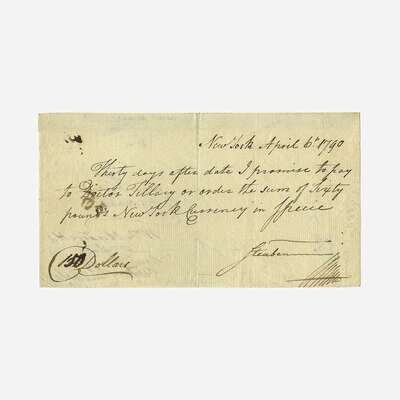 New York April 6th 1790
Thirty days after date I promise to pay
to Doctor Tillary or order the sum of Sixty
pounds New York Currency in Specie
Steuben
150 Dollars